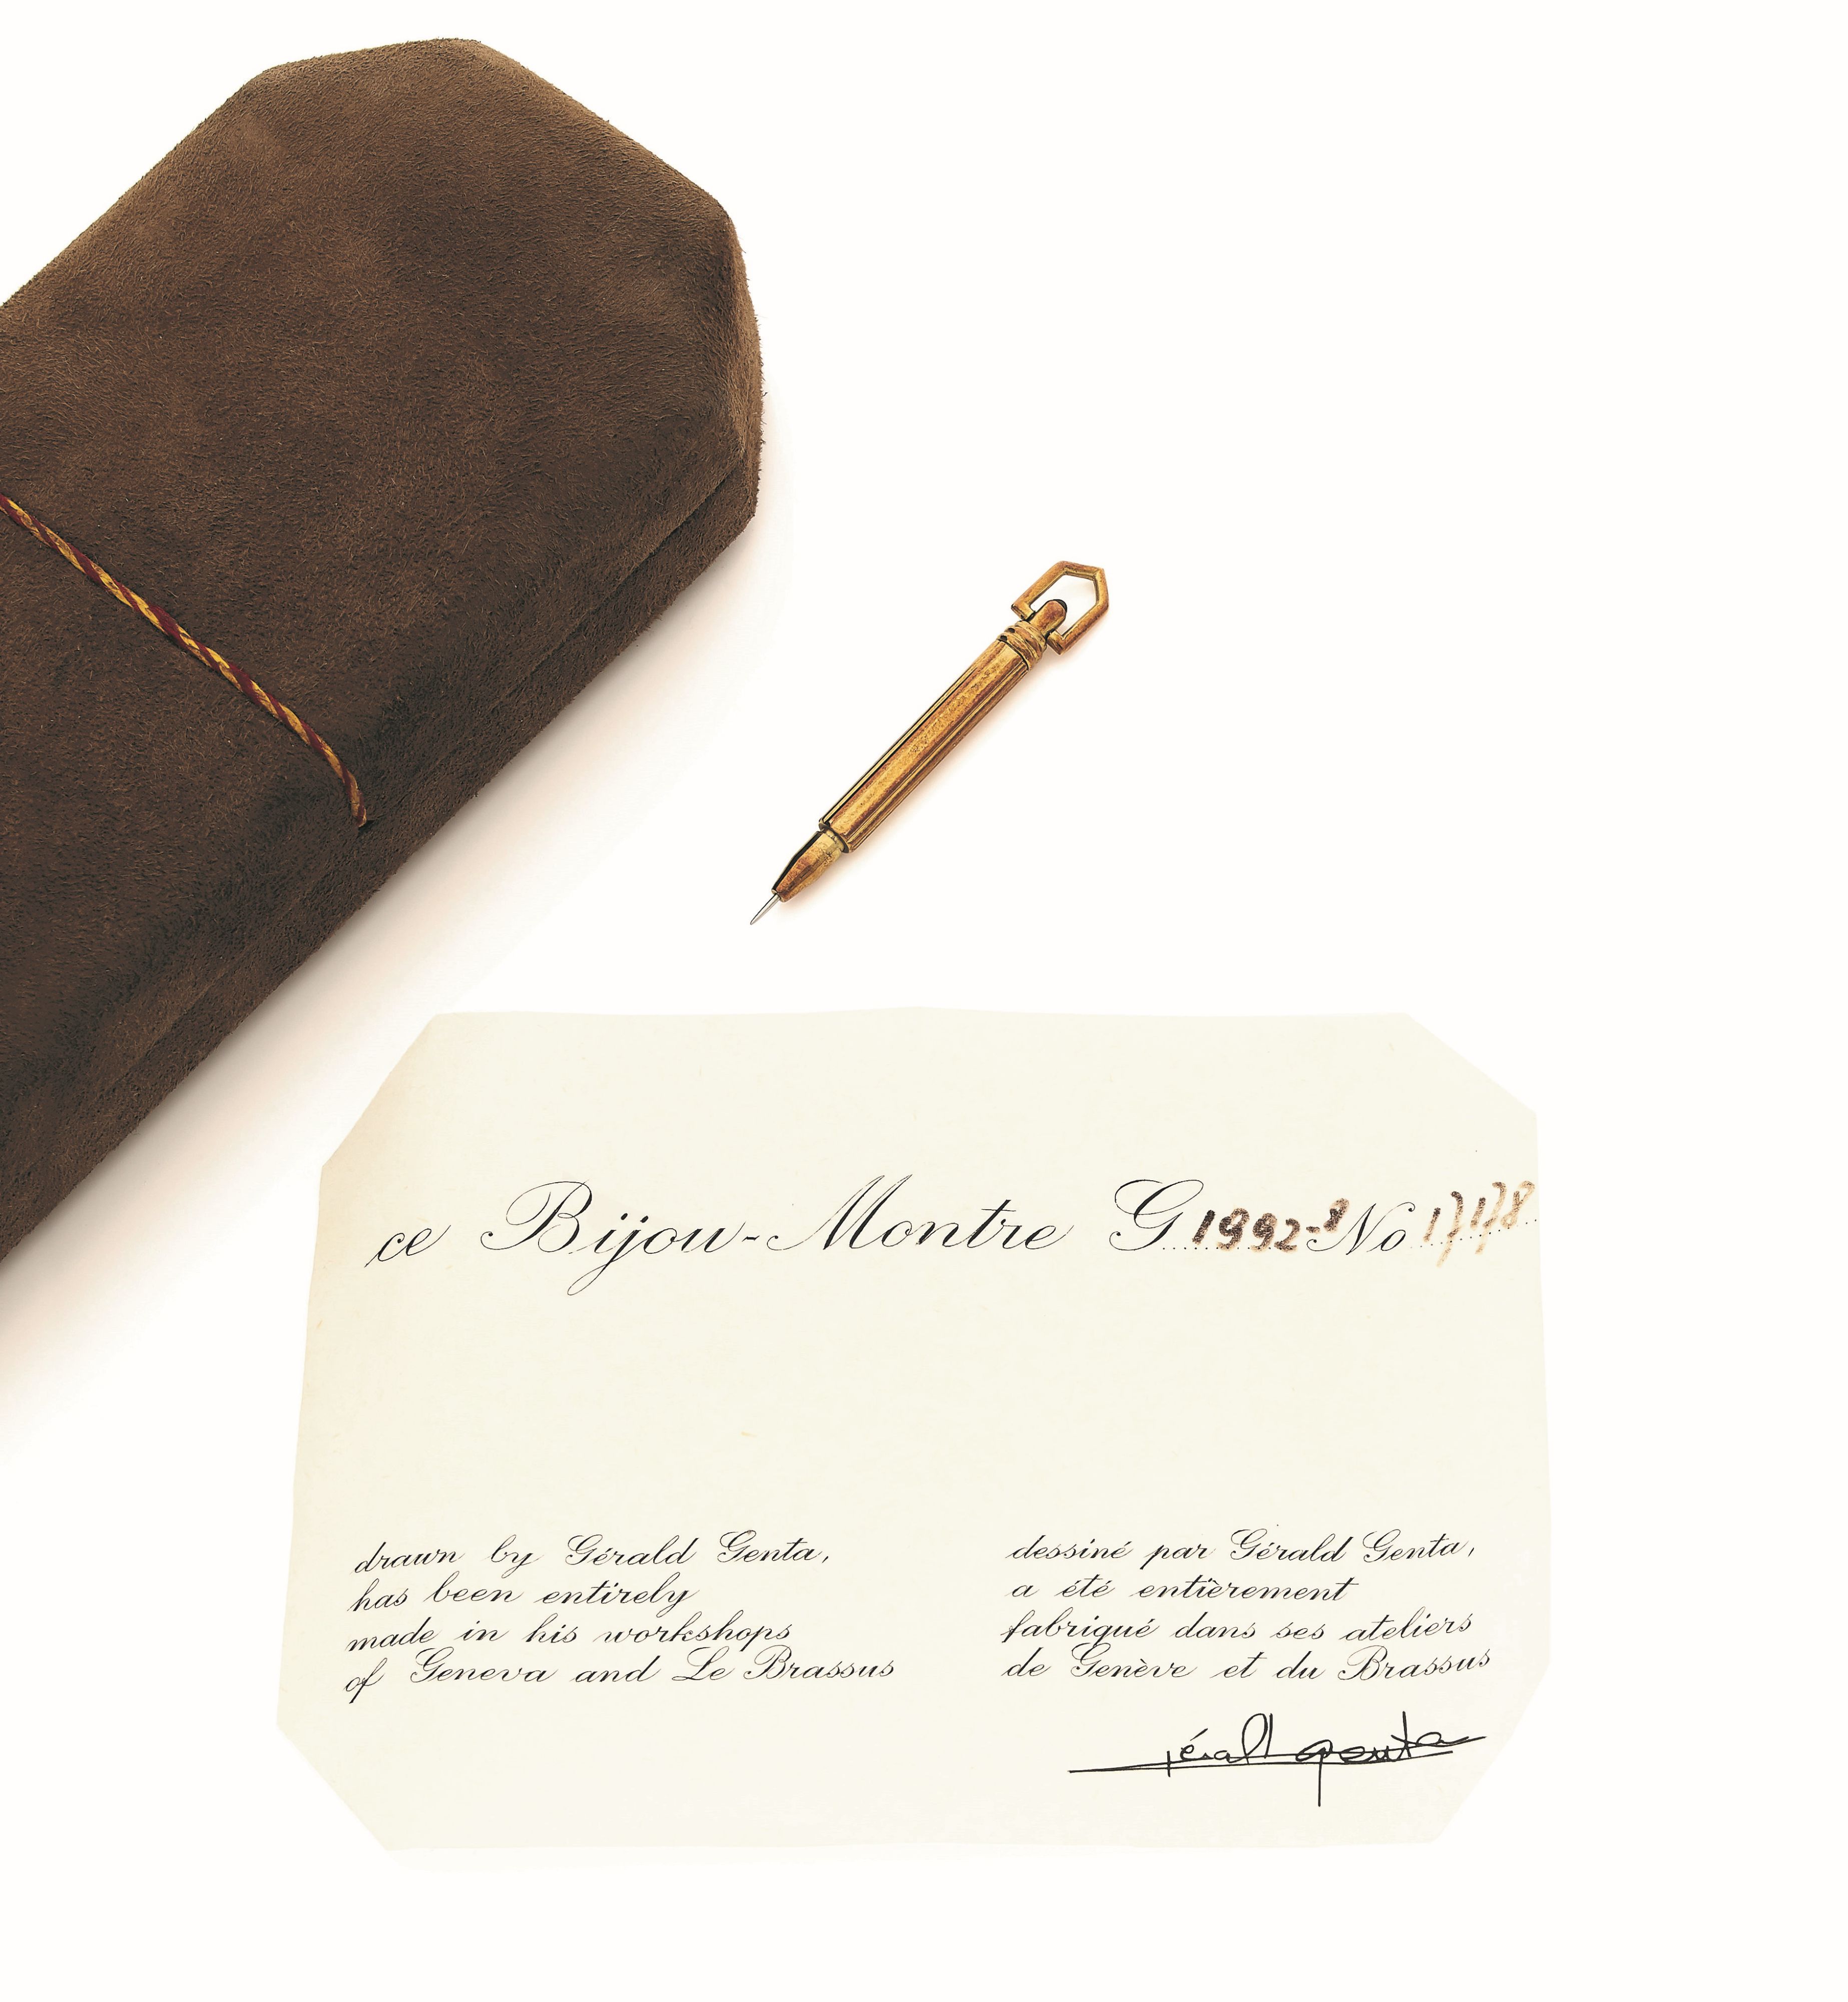 ce Bijou-Montre G 1992-8 No
drawn by Gérald Genta,
has been entirely
made in his workshops
of Geneva and Le Brassus
dessiné par Gérald Genta,
a été entièrement
fabriqué dans ses ateliers
de Genève et du Brassus
gérald genta